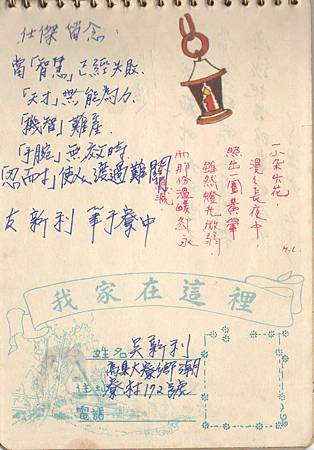 仕傑留念：
當「智慧」已經失敗.
「天才」無能為力.
「機智」難產.
「手腕」無效時
「忍耐」使人渡過難關
友 新利 筆于寮中
一小朵火花,
漫々長夜中,
照出一圈黃暈
雖然燈光微弱
而那份溫暖卻永
M.L
我家在這裡
姓名 吳新利
住址 高縣大寮鄉潮
寮村172號
電話